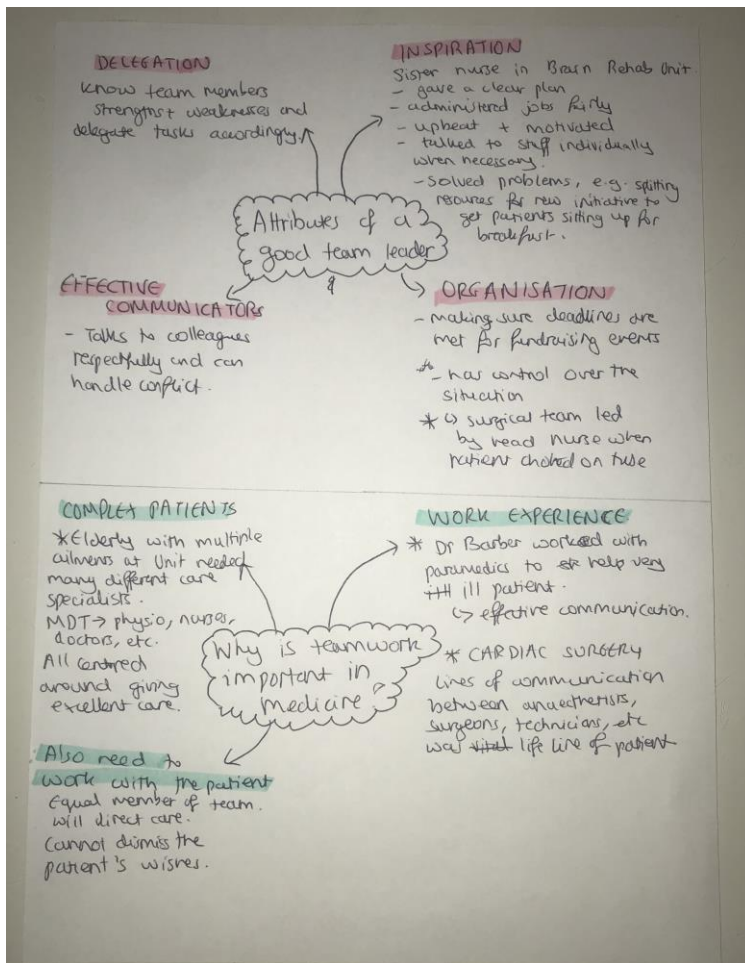 DELEGATION
Know team members
strengths + weaknesses and
delegate tasks accordingly.
INSPIRATION
Sister nurse in Brain Rehab Unit
- gave a clear plan
- administered jobs fairly
- upbeat + motivated
- talked to staff individually
when necessary.
- solved problems, e.g. splitting
resources for new initiative to
get patients sitting up for
breakfast.
Attributes of a
good team leader
EFFECTIVE
COMMUNICATORS
- Talks to colleagues
respectfully and can
handle conflict.
ORGANISATION
- making sure deadlines are
met for fundraising events
- has control over the
situation
* ↳ surgical team led
by head nurse when
patient choked on tube
COMPLEX PATIENTS
* Elderly with multiple
ailments at Unit needed
many different care
specialists.
MDT → physio, nurses,
doctors, etc.
All centred
around giving
excellent care.
WORK EXPERIENCE
* Dr Barber worked with
paramedics to help very
ill patient.
↳ effective communication.
* CARDIAC SURGERY
Lines of communication
between anaesthetists,
surgeons, technicians, etc
was vital life line of patient
Why is teamwork
important in
medicine?
Also need to
work with the patient
Equal member of team.
will direct care.
Cannot dismiss the
patient's wishes.